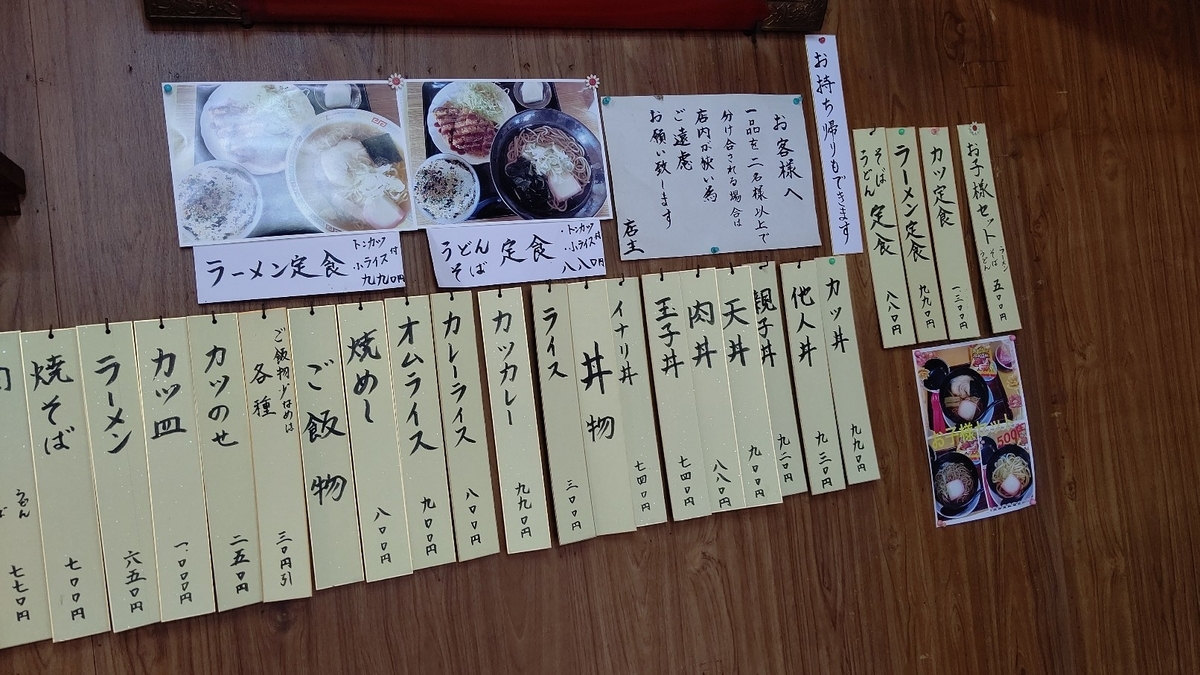 お子様セット ラーメン そば うどん 五〇〇円
カツ定食 一三〇〇円
ラーメン定食 九九〇円
そば うどん 定食 八八〇円
お持ち帰りもできます
お客様へ
一品を二名様以上で
分け合される場合は
店内が狭い為
ご遠慮
お願い致します
店主
うどん そば 定食 ・トンカツ ・小ライス付 八八〇円
ラーメン定食 トンカツ 小ライス付 九九〇円
お子様セット
500円
カツ丼 九九〇円
他人丼 九三〇円
親子丼 九二〇円
天丼 九〇〇円
肉丼 八八〇円
玉子丼 七四〇円
イナリ丼 七四〇円
丼物
ライス 三〇〇円
カツカレー 九九〇円
カレーライス 八〇〇円
オムライス 九〇〇円
焼めし 八〇〇円
ご飯物
ご飯物少なめは
各種 三〇円引
カツのせ 二五〇円
カツ皿 一、〇〇〇円
ラーメン 六五〇円
焼そば 七〇〇円
うどん 七七〇円